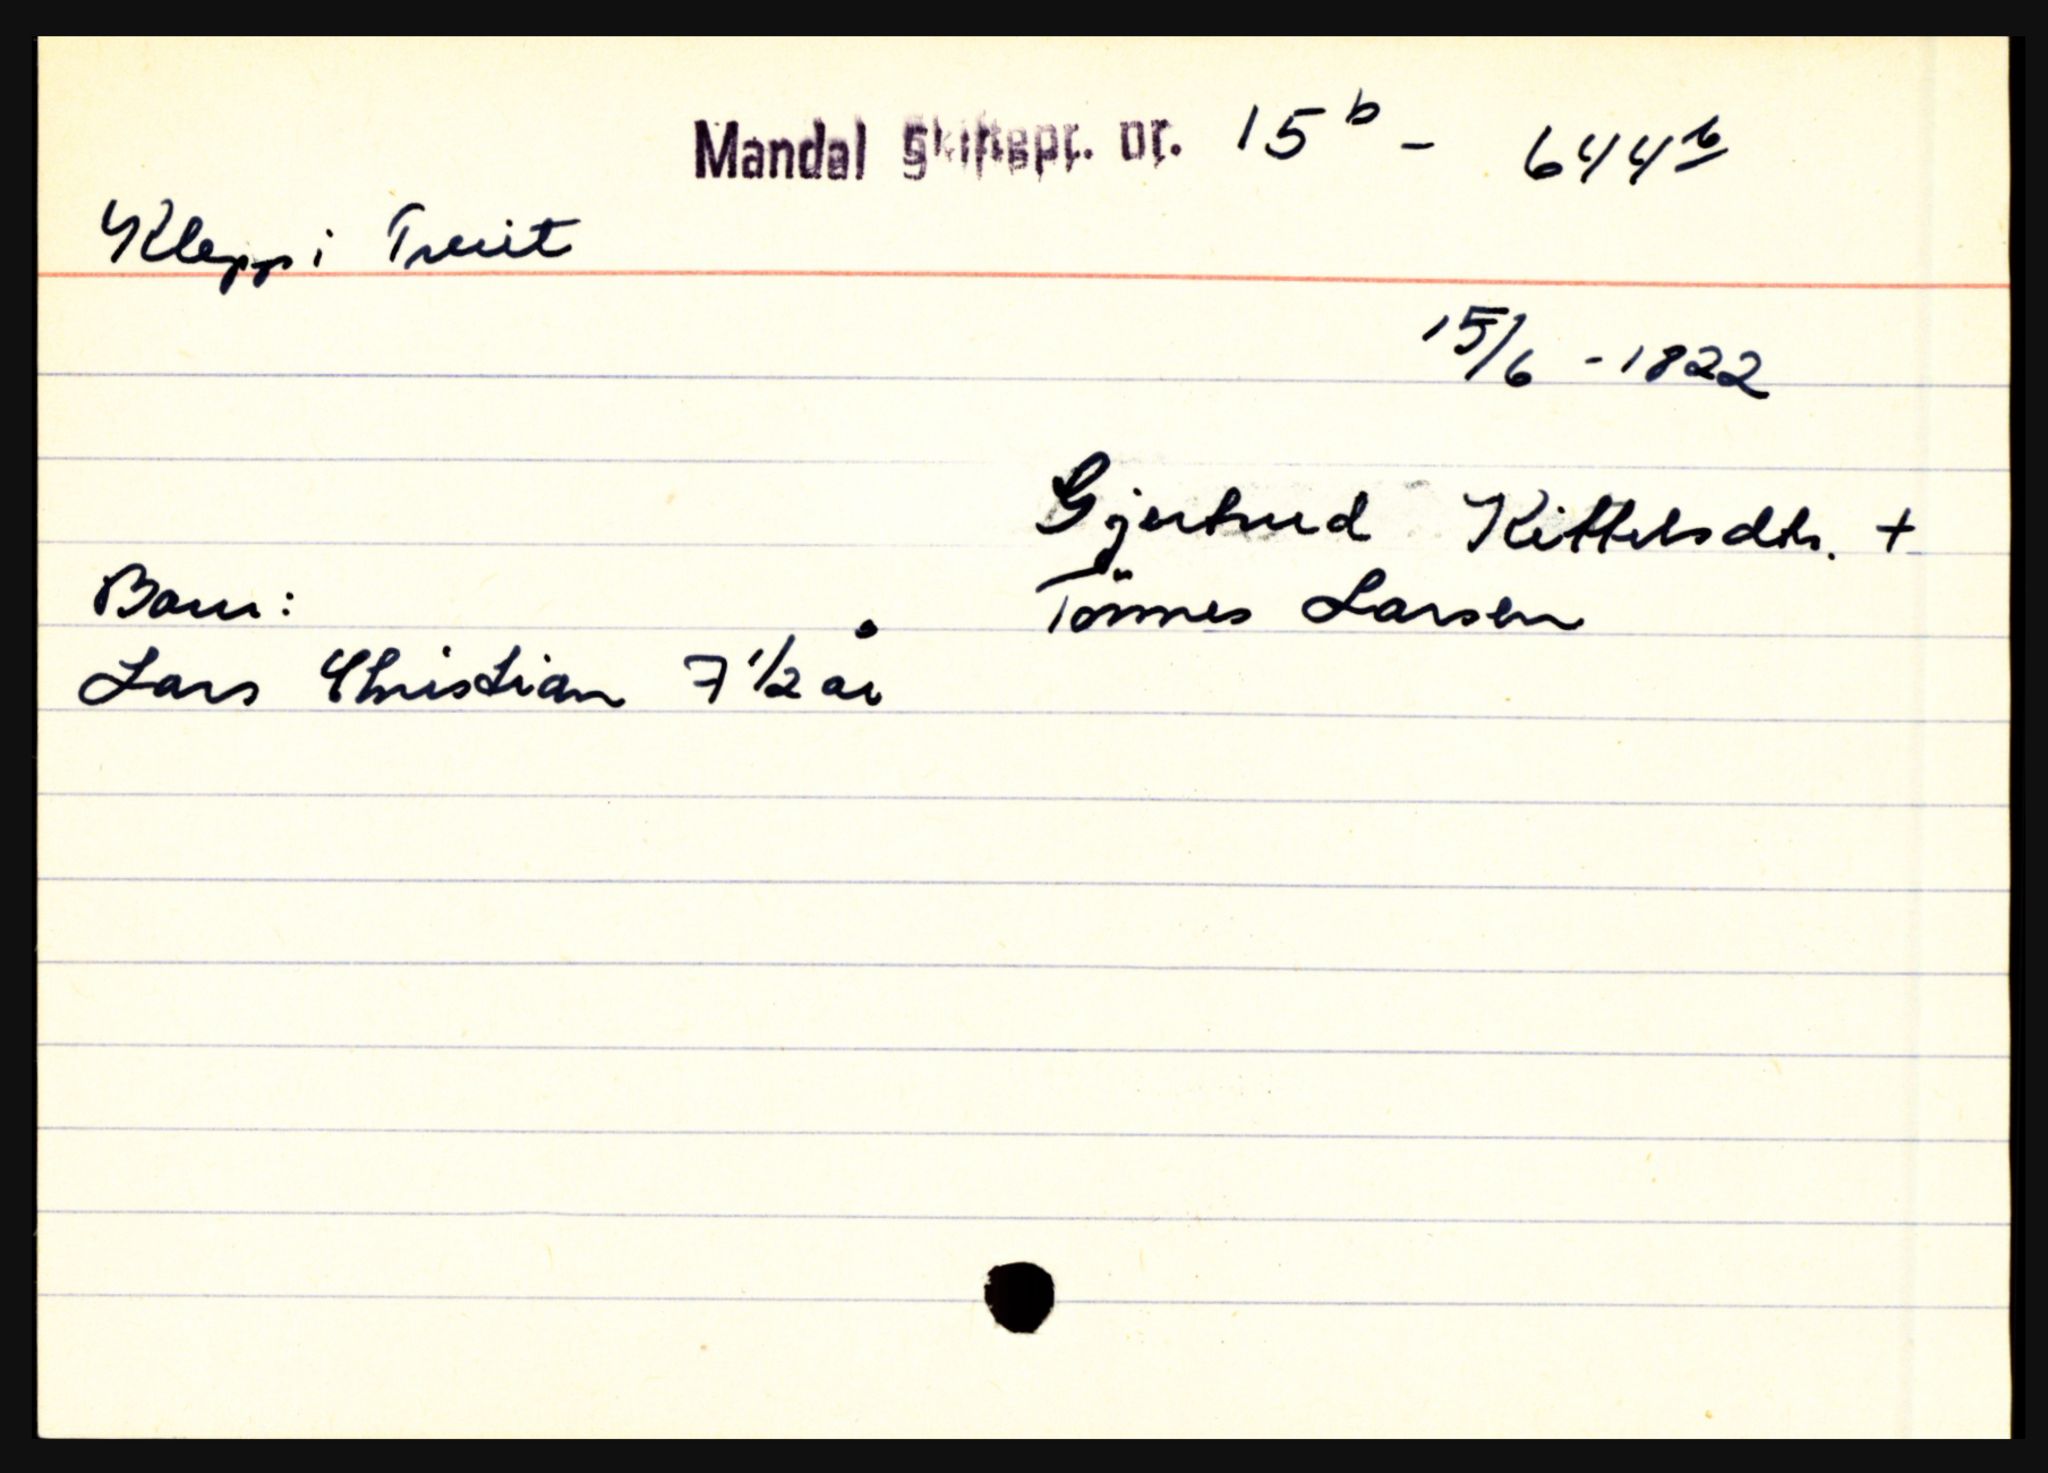 Mandal Skiftepr. nr. 15 b - 644 b
Klepp i Treit
15/6 - 1822
Gjertrud Kittelsdtr. +
Tönnes Larsen
Barn:
Lars Christian 7 1/2 år